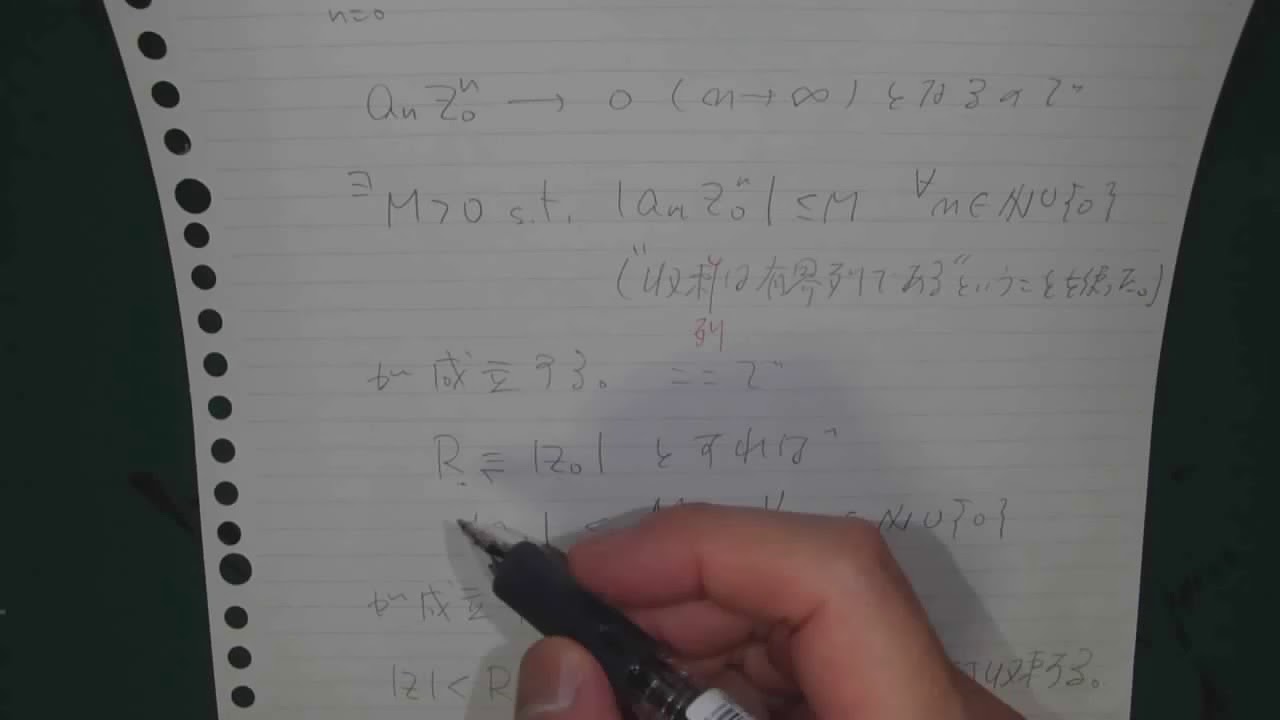 n=0
a_n z_0^n → 0 (n→∞) となるので
∃M>0 s.t. |a_n z_0^n| ≤ M ∀n∈ℕ∪{0}
("収利は有界列である"ということを使った。)
列
が成立する。ここで
R ≡ |z_0| とすれば
∈ℕ∪{0}
が成立
|z|<R 収束する。